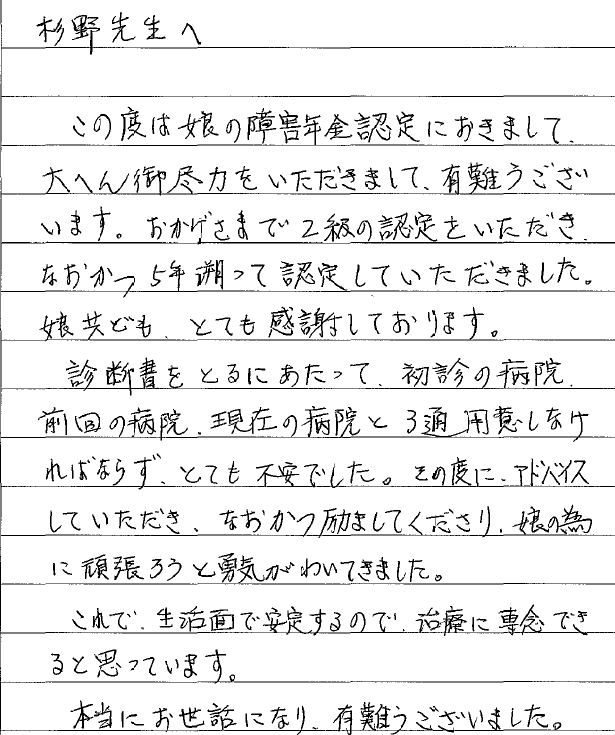 杉野先生へ
この度は娘の障害年金認定におきまして、
大へん御尽力をいただきまして、有難うござい
います。おかげさまで2級の認定をいただき、
なおかつ5年遡って認定していただきました。
娘共ども、とても感謝しております。
診断書をとるにあたって、初診の病院、
前回の病院、現在の病院と3通用意しなけ
ればならず、とても不安でした。その度に、アドバイス
していただき、なおかつ励ましてくださり、娘の為
に頑張ろうと勇気がわいてきました。
これで、生活面で安定するので、治療に専念でき
ると思っています。
本当にお世話になり、有難うございました。